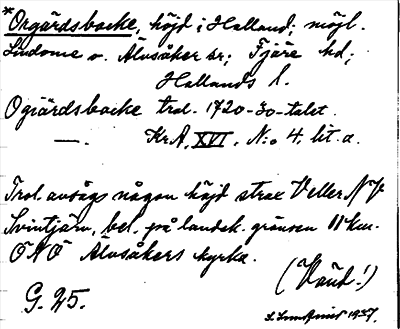 *Orgärdsbacke, höjd i Halland; möjl.
Lindome o. Älvsåker sr; Fjäre hd;
Hallands l.
Ogiärdsbacke trol. 1720-30-talet
—. Kr.A. XVI, N:o 4, lit. a.
Trol. avsågs någon höjd strax V eller NV
Svintjärn, bel. på landsk. gränsen 11 km.
ONO Älvsåkers kyrka.
(Vänd!)
G. 25.
1937.